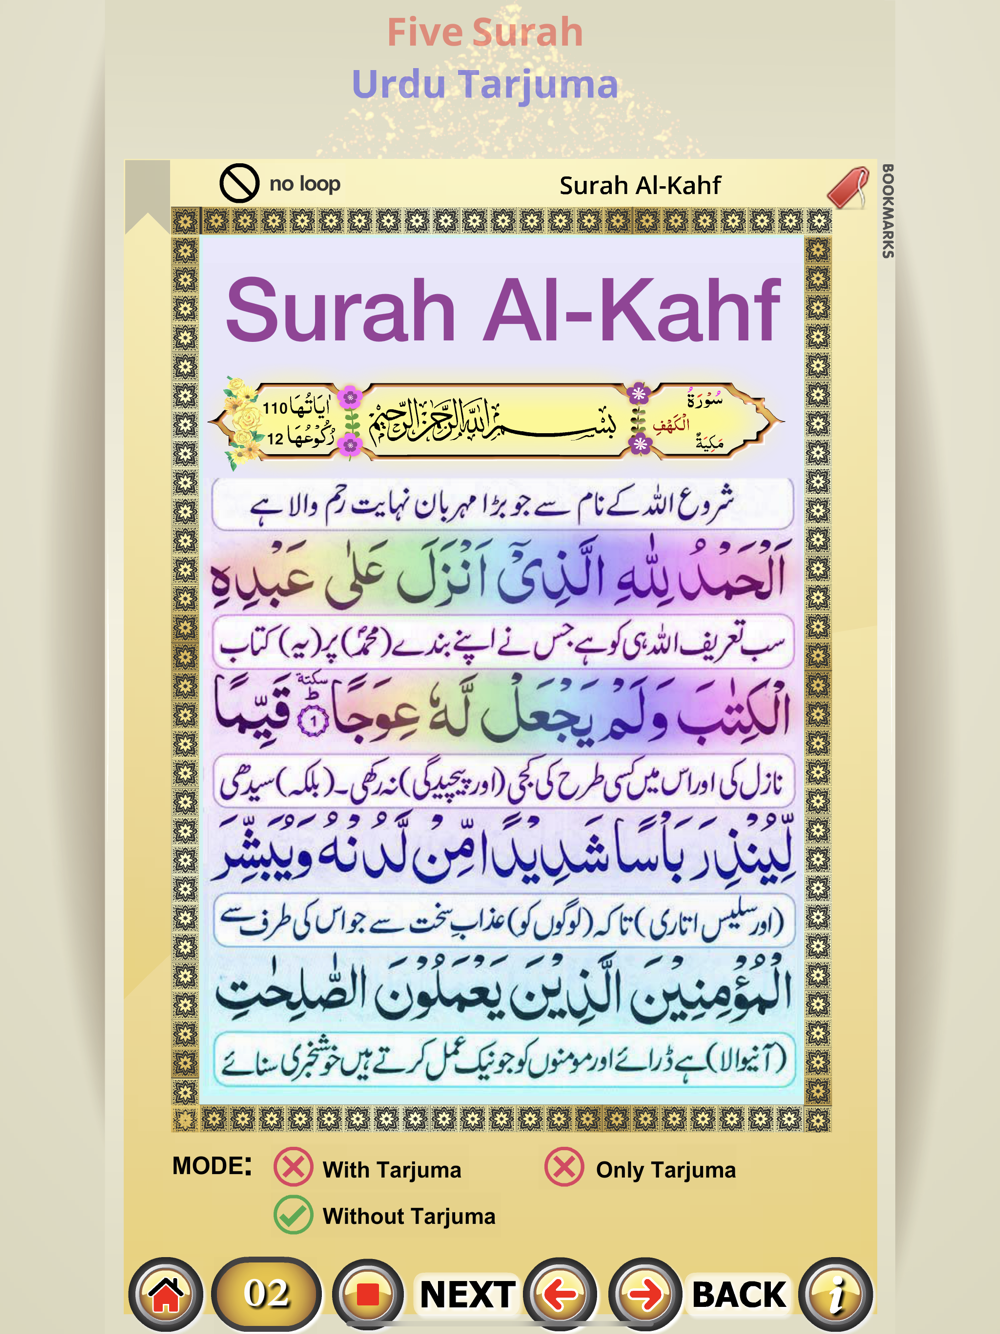 Five Surah
Urdu Tarjuma
no loop
Surah Al-Kahf
BOOKMARKS
Surah Al-Kahf
سُوْرَةُ
الْكَهْفِ
مَكِيَّةٌ
بِسْمِ اللّٰهِ الرَّحْمٰنِ الرَّحِيْمِ
اٰيَاتُهَا 110
رُكُوْعُهَا 12
شروع اللہ کے نام سے جو بڑا مہربان نہایت رحم والا ہے
اَلْحَمْدُ لِلّٰهِ الَّذِیْۤ اَنْزَلَ عَلٰی عَبْدِهِ
سب تعریف اللہ ہی کو ہے جس نے اپنے بندے (محمدؐ) پر (یہ) کتاب
الْكِتٰبَ وَلَمْ یَجْعَلْ لَّهٗ عِوَجًا ؕ سكتة ۱ قَیِّمًا
نازل کی اور اس میں کسی طرح کی کجی (اور پیچیدگی) نہ رکھی۔ (بلکہ) سیدھی
لِّیُنْذِرَ بَاْسًا شَدِیْدًا مِّنْ لَّدُنْهُ وَیُبَشِّرَ
(اور سلیس اتاری) تاکہ (لوگوں کو) عذاب سخت سے جو اس کی طرف سے
الْمُؤْمِنِیْنَ الَّذِیْنَ یَعْمَلُوْنَ الصّٰلِحٰتِ
(آنیوالا) ہے ڈرائے اور مومنوں کو جو نیک عمل کرتے ہیں خوشخبری سنائے
MODE:
With Tarjuma
Only Tarjuma
Without Tarjuma
02
NEXT
BACK
i